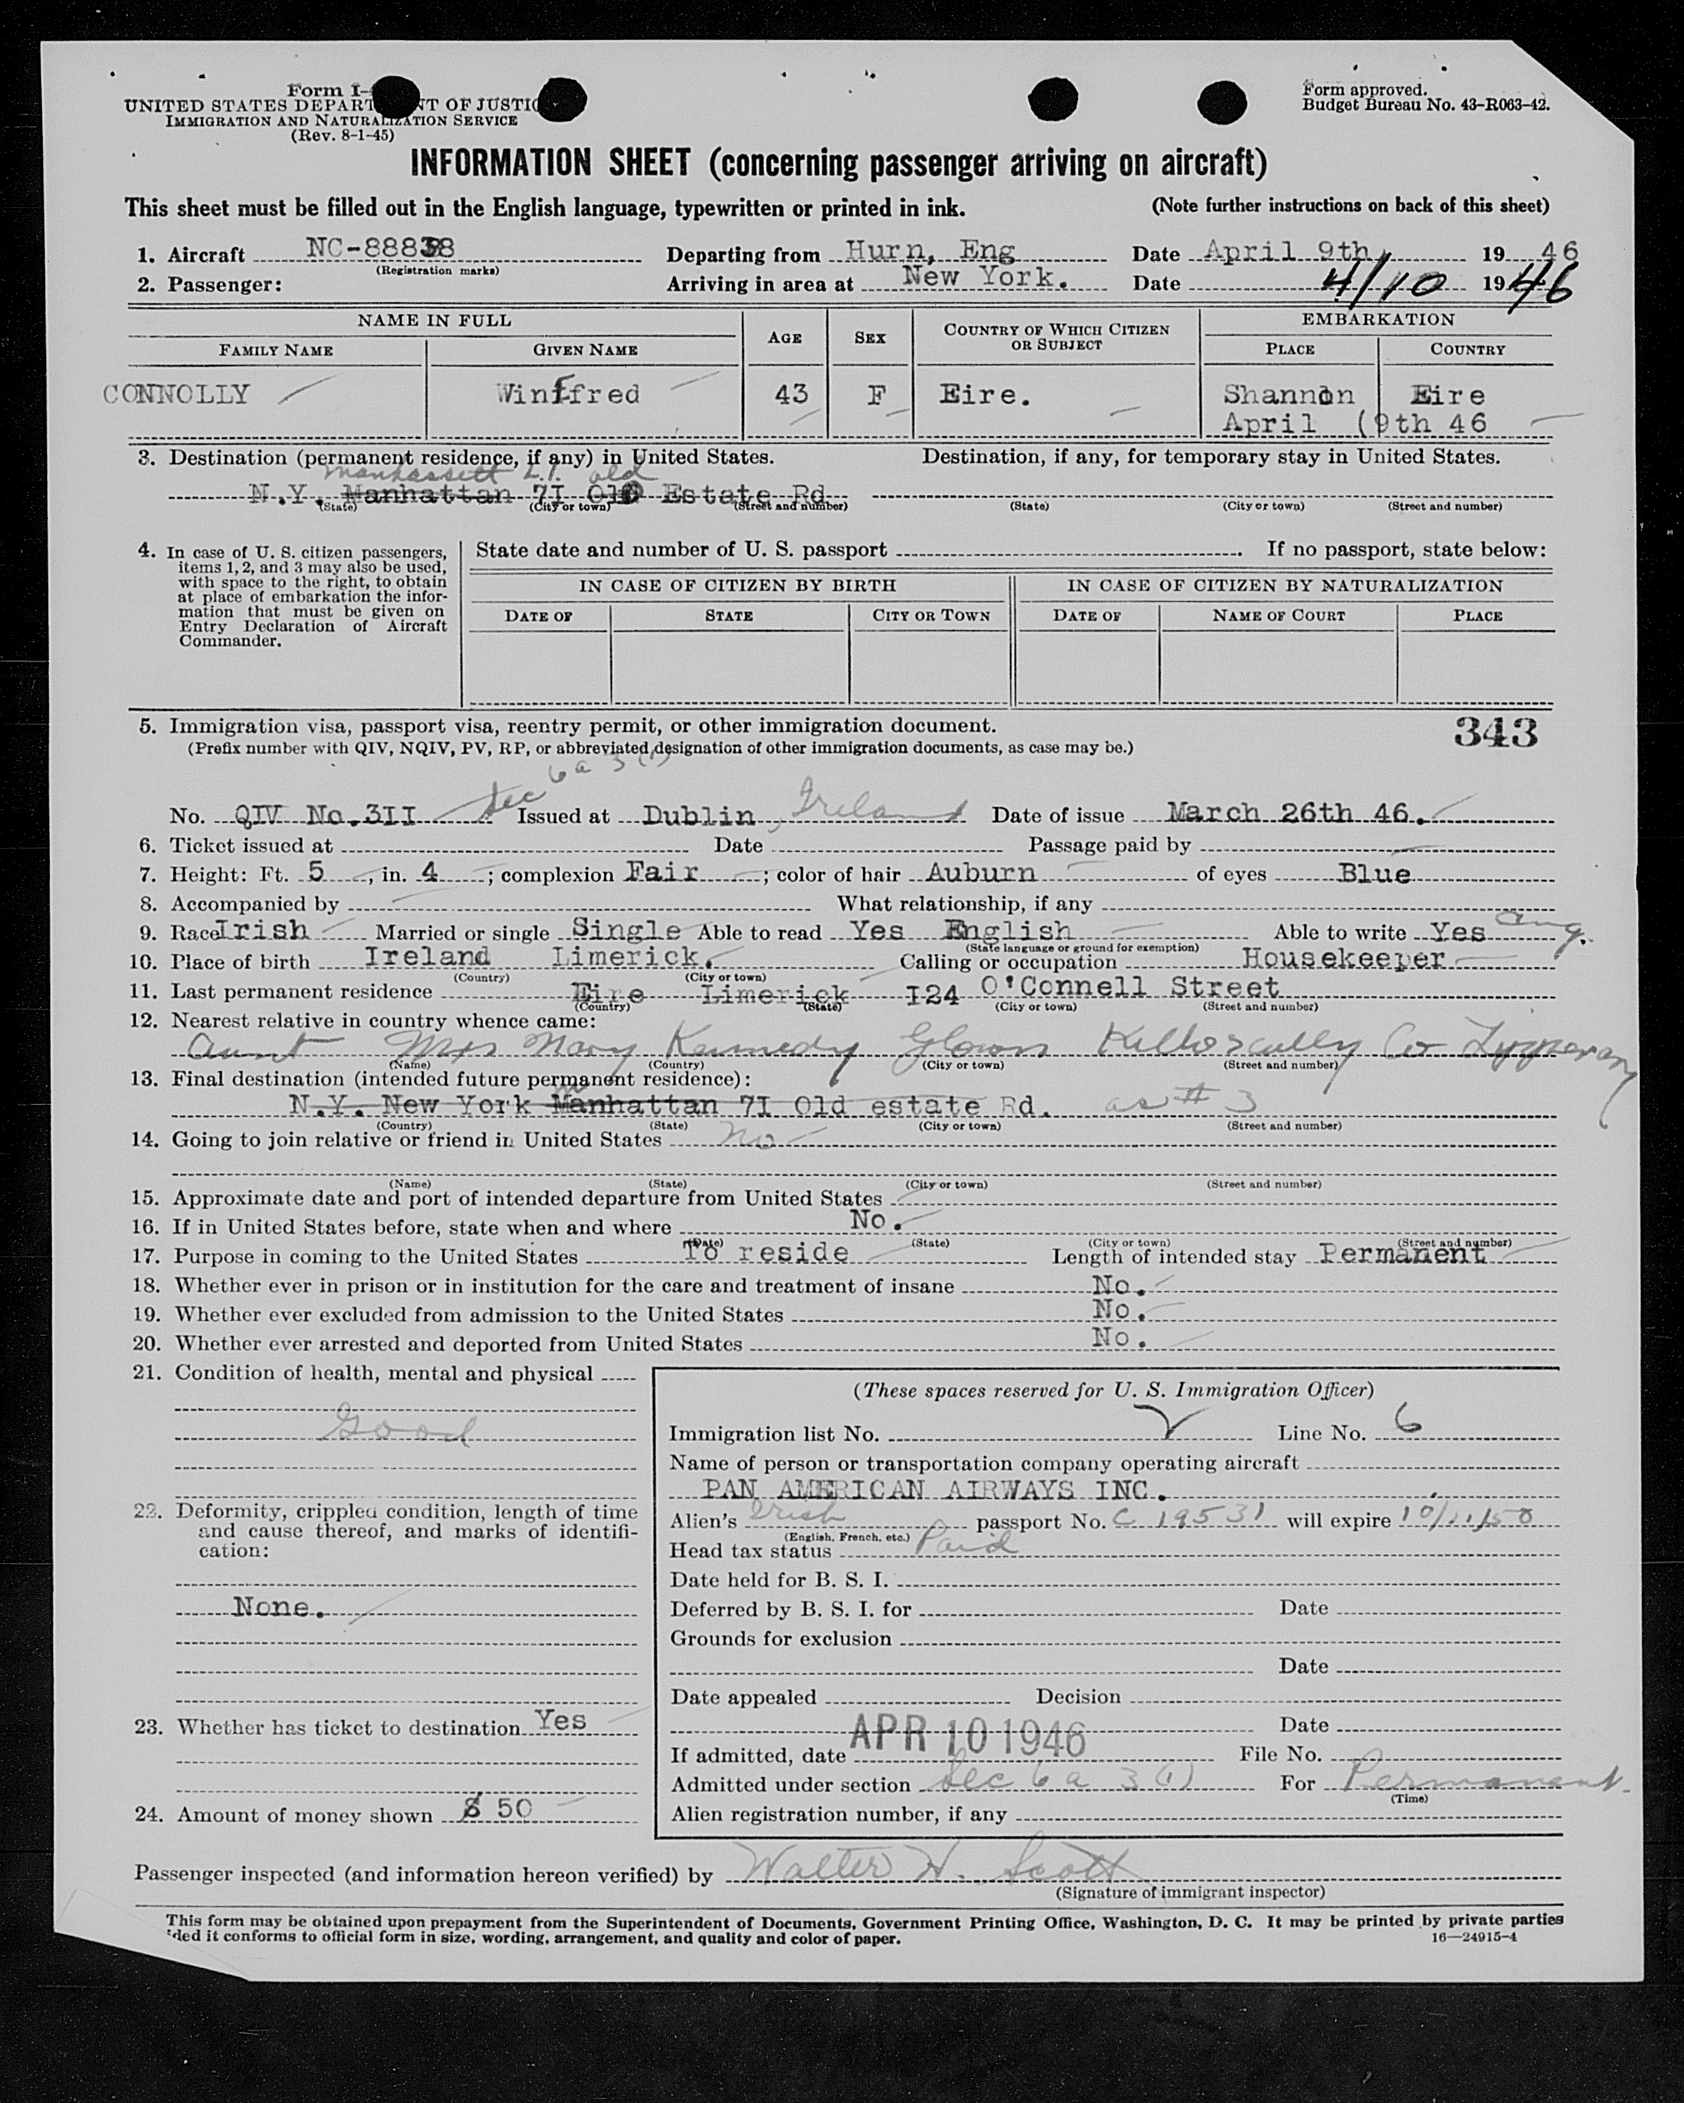 Form I-
UNITED STATES DEPARTMENT OF JUSTICE
IMMIGRATION AND NATURALIZATION SERVICE
(Rev. 8-1-45)
Form approved.
Budget Bureau No. 43-R063-42.
INFORMATION SHEET (concerning passenger arriving on aircraft)
This sheet must be filled out in the English language, typewritten or printed in ink. (Note further instructions on back of this sheet)
1. Aircraft NC-88838 Departing from Hurn, Eng Date April 9th, 19 46
(Registration marks)
2. Passenger: Arriving in area at New York. Date 4/10 1946
NAME IN FULL AGE SEX COUNTRY OF WHICH CITIZEN OR SUBJECT EMBARKATION
FAMILY NAME GIVEN NAME PLACE COUNTRY
CONNOLLY Winifred 43 F Eire. Shannon Eire
April (9th 46
3. Destination (permanent residence, if any) in United States. Destination, if any, for temporary stay in United States.
Manhassett L.I. old
N.Y. Manhattan 7I Old Estate Rd
(State) (City or town) (Street and number) (State) (City or town) (Street and number)
4. In case of U. S. citizen passengers, items 1, 2, and 3 may also be used, with space to the right, to obtain at place of embarkation the information that must be given on Entry Declaration of Aircraft Commander.
State date and number of U. S. passport . If no passport, state below:
IN CASE OF CITIZEN BY BIRTH IN CASE OF CITIZEN BY NATURALIZATION
DATE OF STATE CITY OR TOWN DATE OF NAME OF COURT PLACE
5. Immigration visa, passport visa, reentry permit, or other immigration document. 343
(Prefix number with QIV, NQIV, PV, RP, or abbreviated designation of other immigration documents, as case may be.)
Sec 6a 3(1)
No. QIV No.3II Issued at Dublin, Ireland Date of issue March 26th 46.
6. Ticket issued at Date Passage paid by
7. Height: Ft. 5, in. 4; complexion Fair; color of hair Auburn of eyes Blue
8. Accompanied by What relationship, if any
9. Race Irish Married or single Single Able to read Yes English Able to write Yes Eng.
(State language or ground for exemption)
10. Place of birth Ireland Limerick. Calling or occupation Housekeeper
(Country) (City or town)
11. Last permanent residence Eire Limerick I24 O'Connell Street
(Country) (State) (City or town) (Street and number)
12. Nearest relative in country whence came:
Aunt Mrs Mary Kennedy Glown Killoscully Co Tipperary
(Name) (Country) (City or town) (Street and number)
13. Final destination (intended future permanent residence):
N.Y. New York Manhattan 7I Old estate Rd. as # 3
(Country) (State) (City or town) (Street and number)
14. Going to join relative or friend in United States no
(Name) (State) (City or town) (Street and number)
15. Approximate date and port of intended departure from United States
16. If in United States before, state when and where No.
(Date) (State) (City or town) (Street and number)
17. Purpose in coming to the United States To reside Length of intended stay Permanent
18. Whether ever in prison or in institution for the care and treatment of insane No.
19. Whether ever excluded from admission to the United States No.
20. Whether ever arrested and deported from United States No.
21. Condition of health, mental and physical
Good
22. Deformity, crippled condition, length of time and cause thereof, and marks of identification:
None.
23. Whether has ticket to destination Yes
24. Amount of money shown $ 50
(These spaces reserved for U. S. Immigration Officer)
Immigration list No. Line No. 6
Name of person or transportation company operating aircraft
PAN AMERICAN AIRWAYS INC.
Alien's Irish passport No. C 19531 will expire 10/11/50
(English, French, etc.)
Head tax status Paid
Date held for B. S. I.
Deferred by B. S. I. for Date
Grounds for exclusion
Date
Date appealed Decision
Date
If admitted, date APR 10 1946 File No.
Admitted under section Sec 6 a 3 (1) For Permanent
(Time)
Alien registration number, if any
Passenger inspected (and information hereon verified) by Walter H. Scott
(Signature of immigrant inspector)
This form may be obtained upon prepayment from the Superintendent of Documents, Government Printing Office, Washington, D. C. It may be printed by private parties
ded it conforms to official form in size, wording, arrangement, and quality and color of paper. 16—24915-4